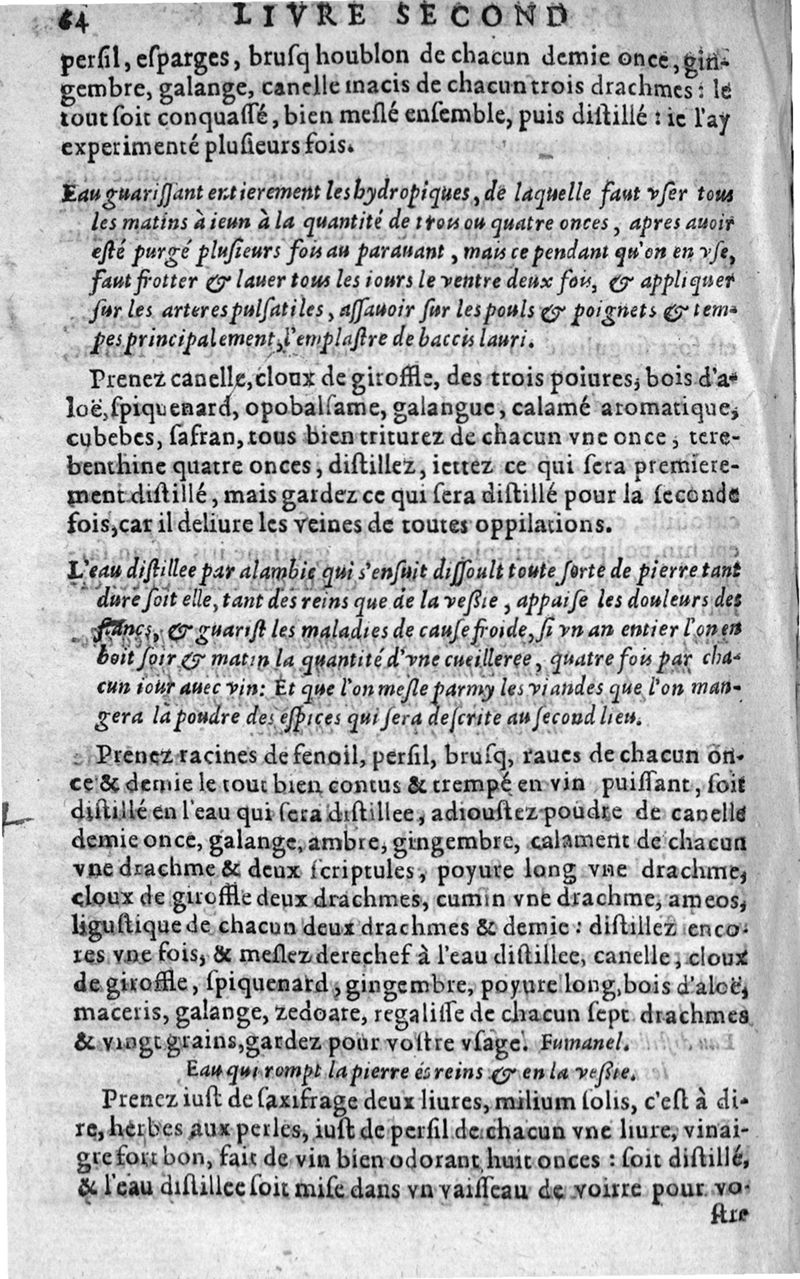 64 LIVRE SECOND
persil, esparges, brusq houblon de chacun demie once, gin-
gembre, galange, canelle macis de chacun trois drachmes: le
tout soit conquassé, bien meslé ensemble, puis distillé : ie l'ay
experimenté plusieurs fois.
Eau guarissant entierement les hydropiques, de laquelle faut vser tous
les matins à ieun à la quantité de trois ou quatre onces, apres auoir
esté purgé plusieurs fois au parauant, mais ce pendant qu'on en vse,
faut frotter & lauer tous les iours le ventre deux fois, & appliquer
sur les arteres pulsatiles, assauoir sur les pouls & poignets & tem-
pes principalement, l'emplastre de baccis lauri.
Prenez canelle, cloux de giroffle, des trois poiures, bois d'a-
loë, spiquenard, opobalsame, galangue, calamé aromatique,
cubebes, safran, tous bien triturez de chacun vne once, tere-
benthine quatre onces, distillez, iettez ce qui sera premiere-
ment distillé, mais gardez ce qui sera distillé pour la seconde
fois, car il deliure les veines de toutes oppilations.
L'eau distillee par alambic qui s'ensuit dissoult toute sorte de pierre tant
dure soit elle, tant des reins que de la vessie, appaise les douleurs des
flancs, & guarist les maladies de cause froide, si vn an entier l'on en
boit soir & matin la quantité d'vne cueilleree, quatre fois par cha-
cun iour auec vin: Et que l'on mesle parmy les viandes que l'on man-
gera la poudre des espices qui sera descrite au second lieu.
Prenez racines de fenoil, persil, brusq, raues de chacun on-
ce & demie le tout bien contus & trempé en vin puissant, soit
distillé en l'eau qui sera distillee, adioustez poudre de canelle
demie once, galange, ambre, gingembre, calament de chacun
vne drachme & deux scriptules, poyure long vne drachme,
cloux de giroffle deux drachmes, cumin vne drachme, ameos,
ligustique de chacun deux drachmes & demie : distillez enco-
res vne fois, & meslez derechef à l'eau distillee, canelle, cloux
de giroffle, spiquenard, gingembre, poyure long, bois d'aloë,
maceris, galange, zedoare, regalisse de chacun sept drachmes
& vingt grains, gardez pour vostre vsage. Fumanel.
Eau qui rompt la pierre és reins & en la vessie.
Prenez iust de saxifrage deux liures, milium solis, c'est à di-
re, herbes aux perles, iust de persil de chacun vne liure, vinai-
gre fort bon, fait de vin bien odorant huit onces : soit distillé,
& l'eau distillee soit mise dans vn vaisseau de voirre pour vo-
stre